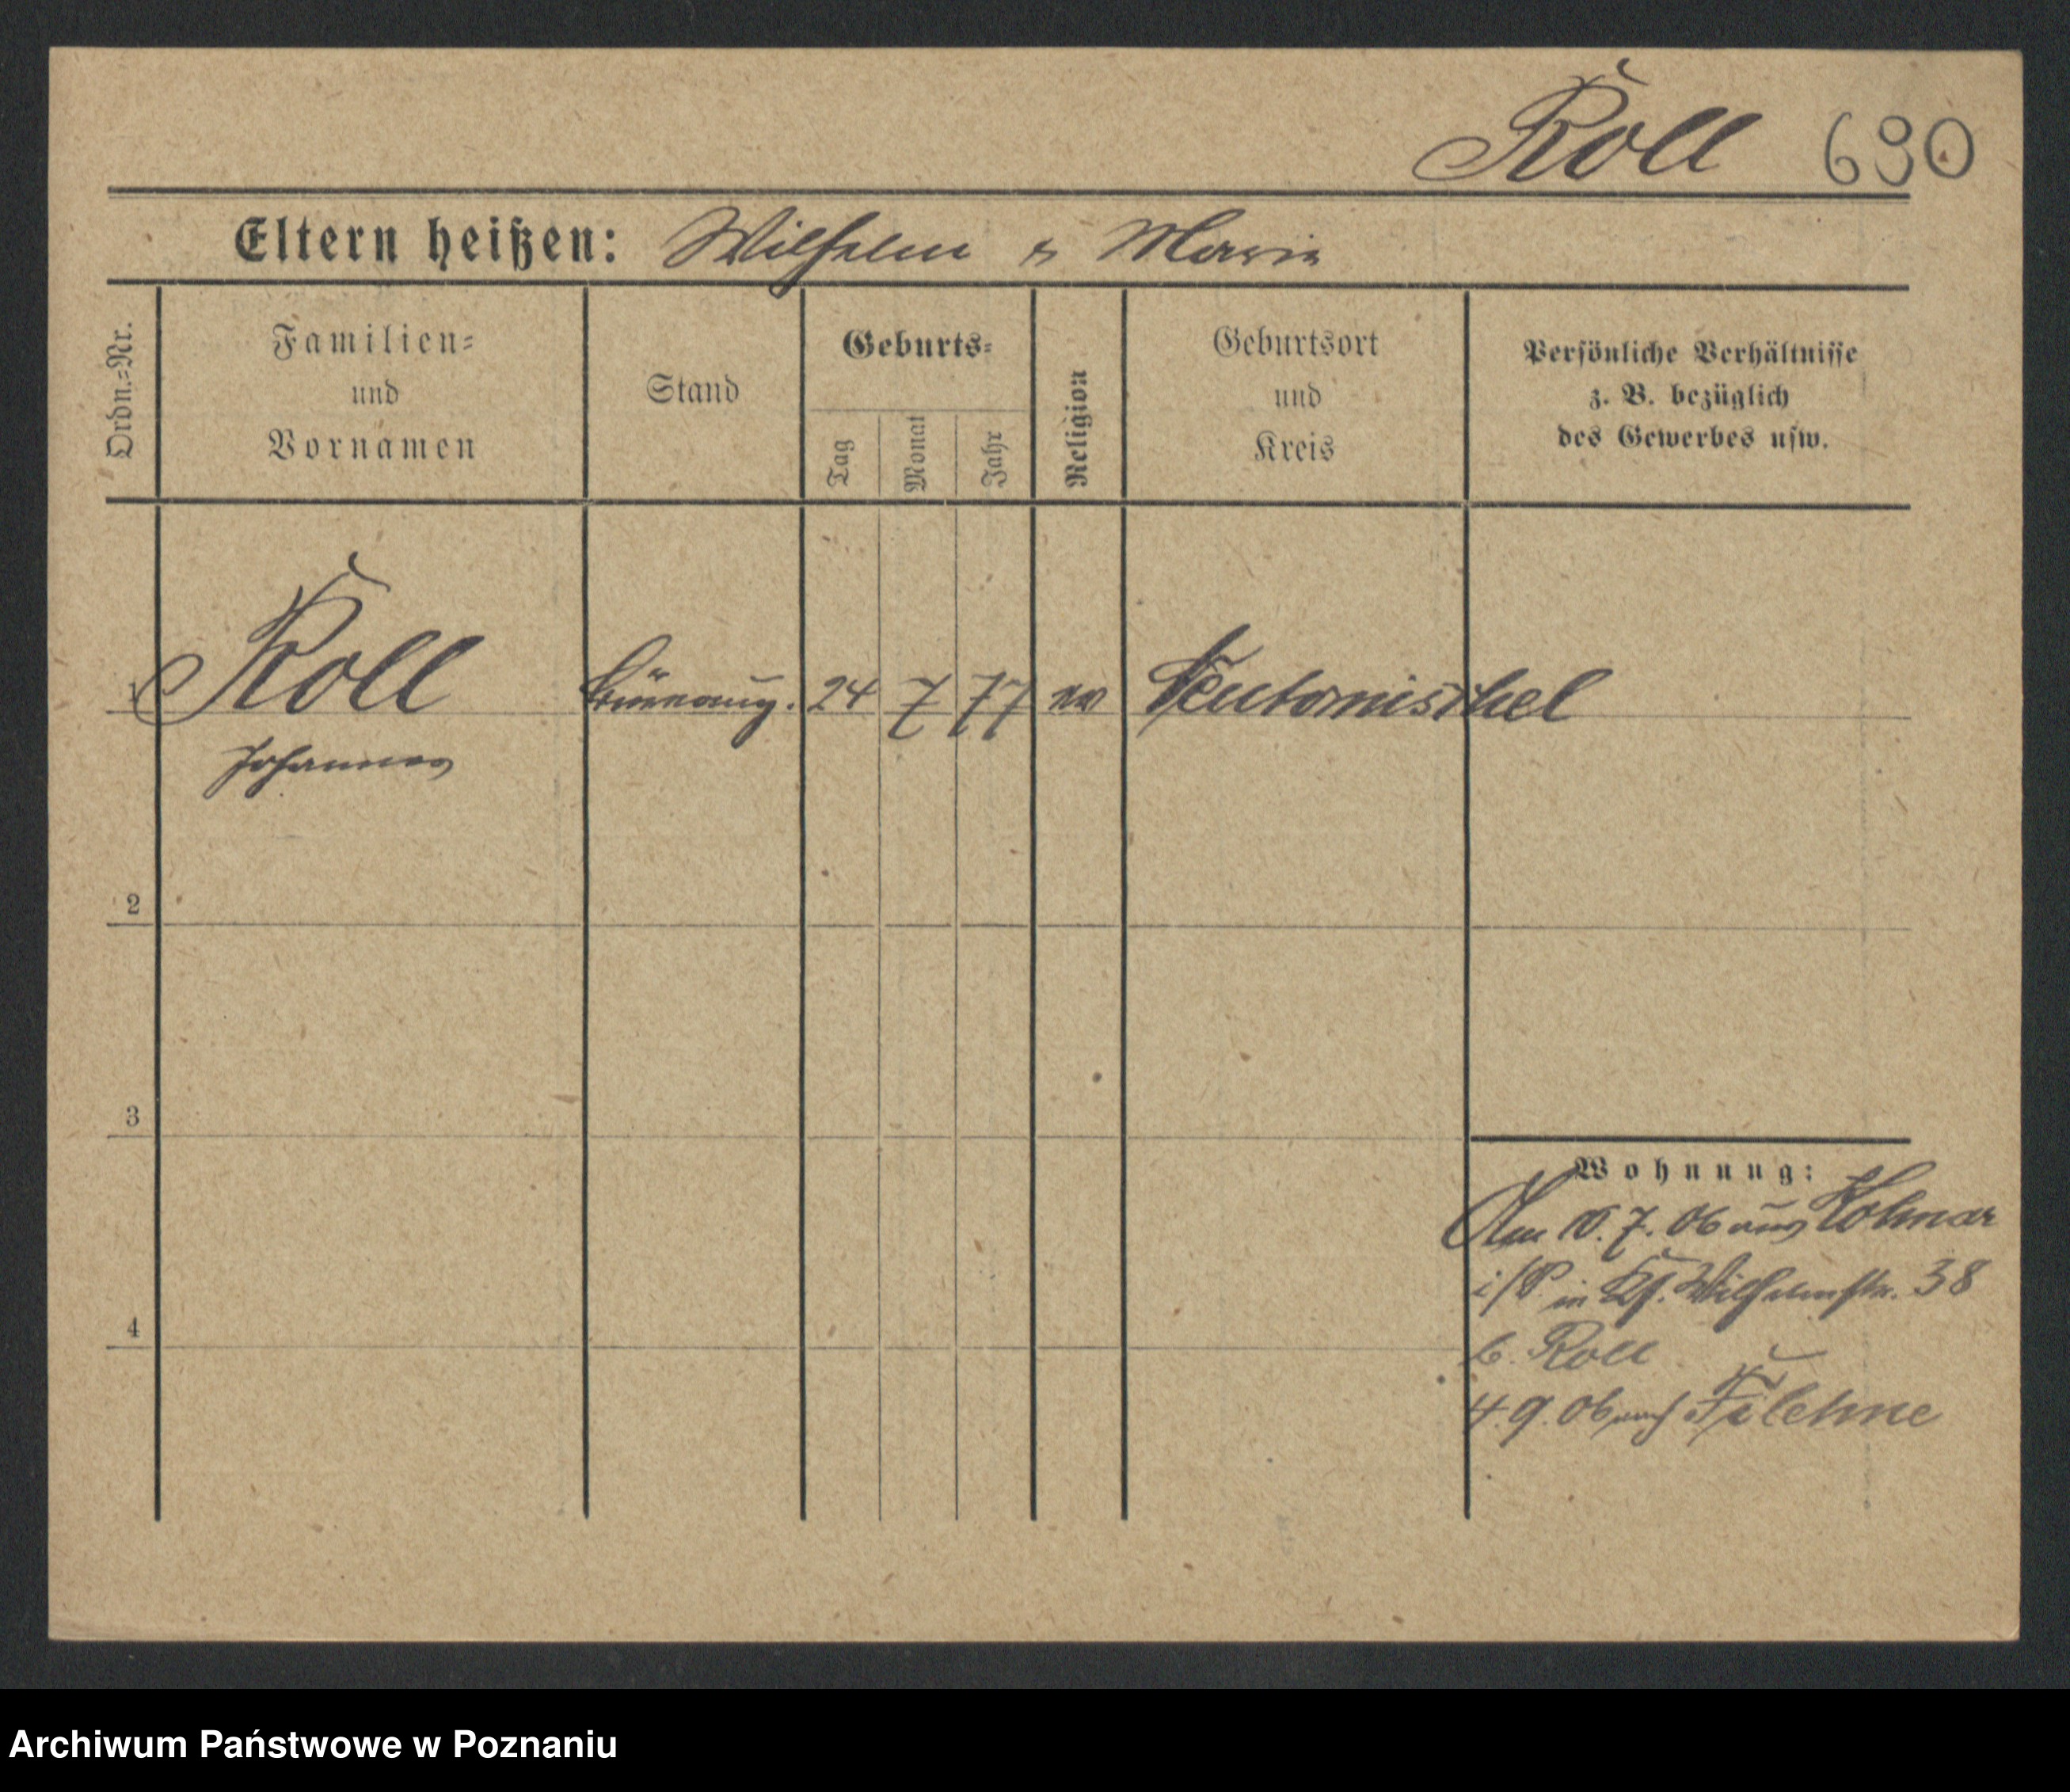 Roll 690
Eltern heißen: Wilhelm & Marie
Ordn.=Nr.
Familien=
und
Vornamen
Stand
Geburts=
Tag
Monat
Jahr
Religion
Geburtsort
und
Kreis
Persönliche Verhältnisse
z. B. bezüglich
des Gewerbes usw.
1 Roll 24 7 77 ev
Johannes
2
3
4
Wohnung:
Am 10. 7. 06 aus Kolmar
i/P in Wilhelmstr. 38
b. Roll
4. 9. 06 nach Filehne
Archiwum Państwowe w Poznaniu